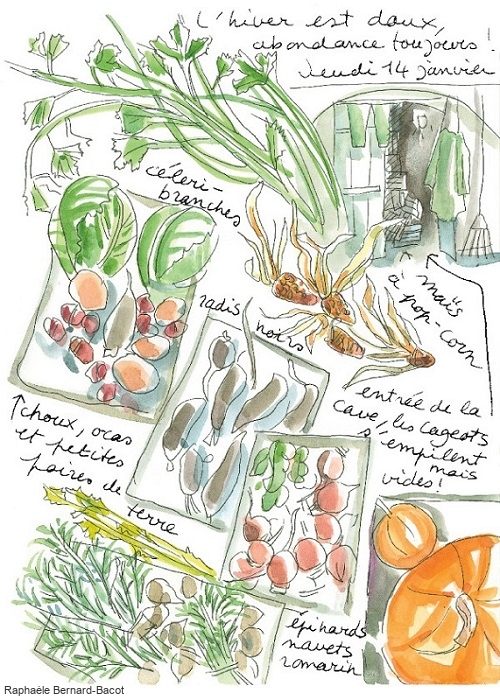 L'hiver est doux,
abondance toujours !
Jeudi 14 janvier
céleri-
branches
maïs
à pop-corn
radis noirs
entrée de la
cave, les cageots
s'empilent
mais
vides !
choux, ocas
et petites
poires de
terre
épinards
navets
romarin
Raphaèle Bernard-Bacot